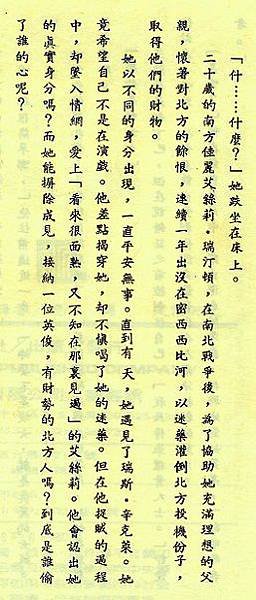 「什……什麼?」她跌坐在床上。
二十歲的南方佳麗艾絲莉・瑞汀頓,在南北戰爭後,為了協助她充滿理想的父
親,懷著對北方的餘恨,連續一年出沒在密西西比河,以迷藥灌倒北方投機份子,
取得他們的財物。
她以不同的身分出現,一直平安無事。直到有 天,她遇見了瑞斯・辛克萊。她
竟希望自己不是在演戲。他差點揭穿她,却不慎喝了她的迷藥。但在他捉賊的過程
中,却墜入情網,愛上「看來很面熟,又不知在那裏見過」的艾絲莉。他會認出她
的真實身分嗎?而她能摒除成見,接納一位英俊,有財勢的北方人嗎?到底是誰偷
了誰的心呢?